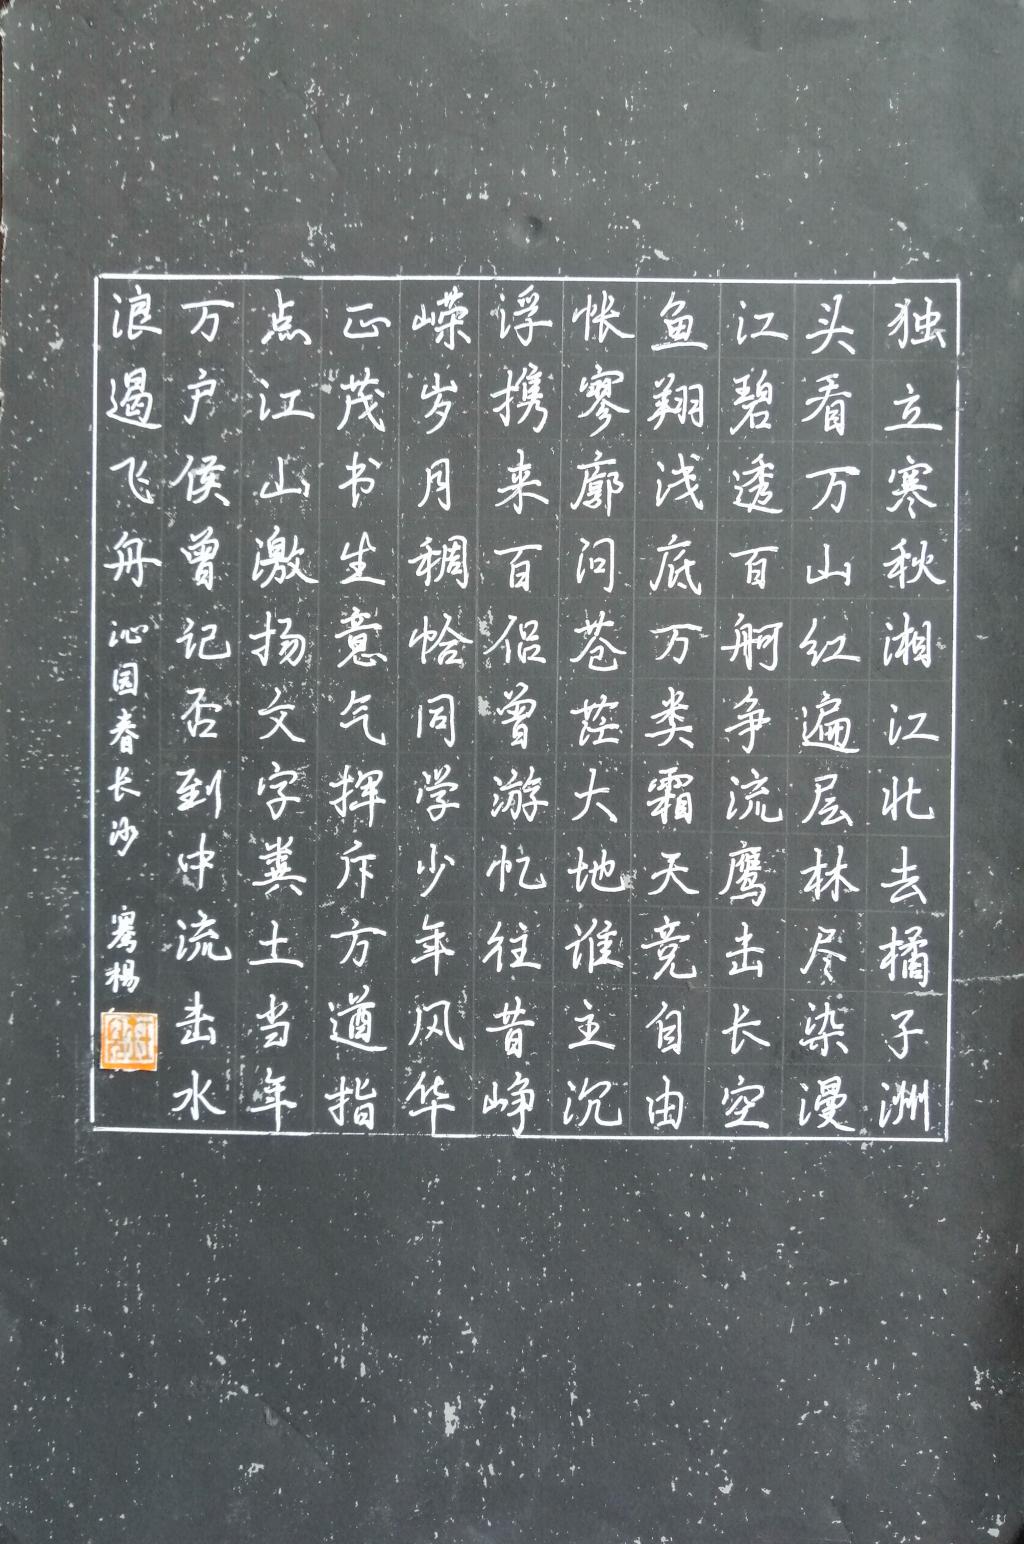 独立寒秋湘江北去橘子洲
头看万山红遍层林尽染漫
江碧透百舸争流鹰击长空
鱼翔浅底万类霜天竞自由
怅寥廓问苍茫大地谁主沉
浮携来百侣曾游忆往昔峥
嵘岁月稠恰同学少年风华
正茂书生意气挥斥方遒指
点江山激扬文字粪土当年
万户侯曾记否到中流击水
浪遏飞舟沁园春长沙